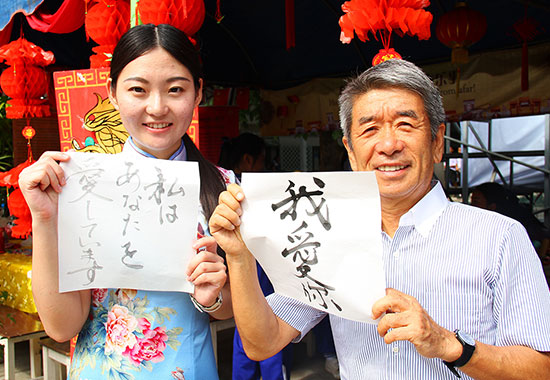 私は
あなたを
愛しています
我爱你
afar!